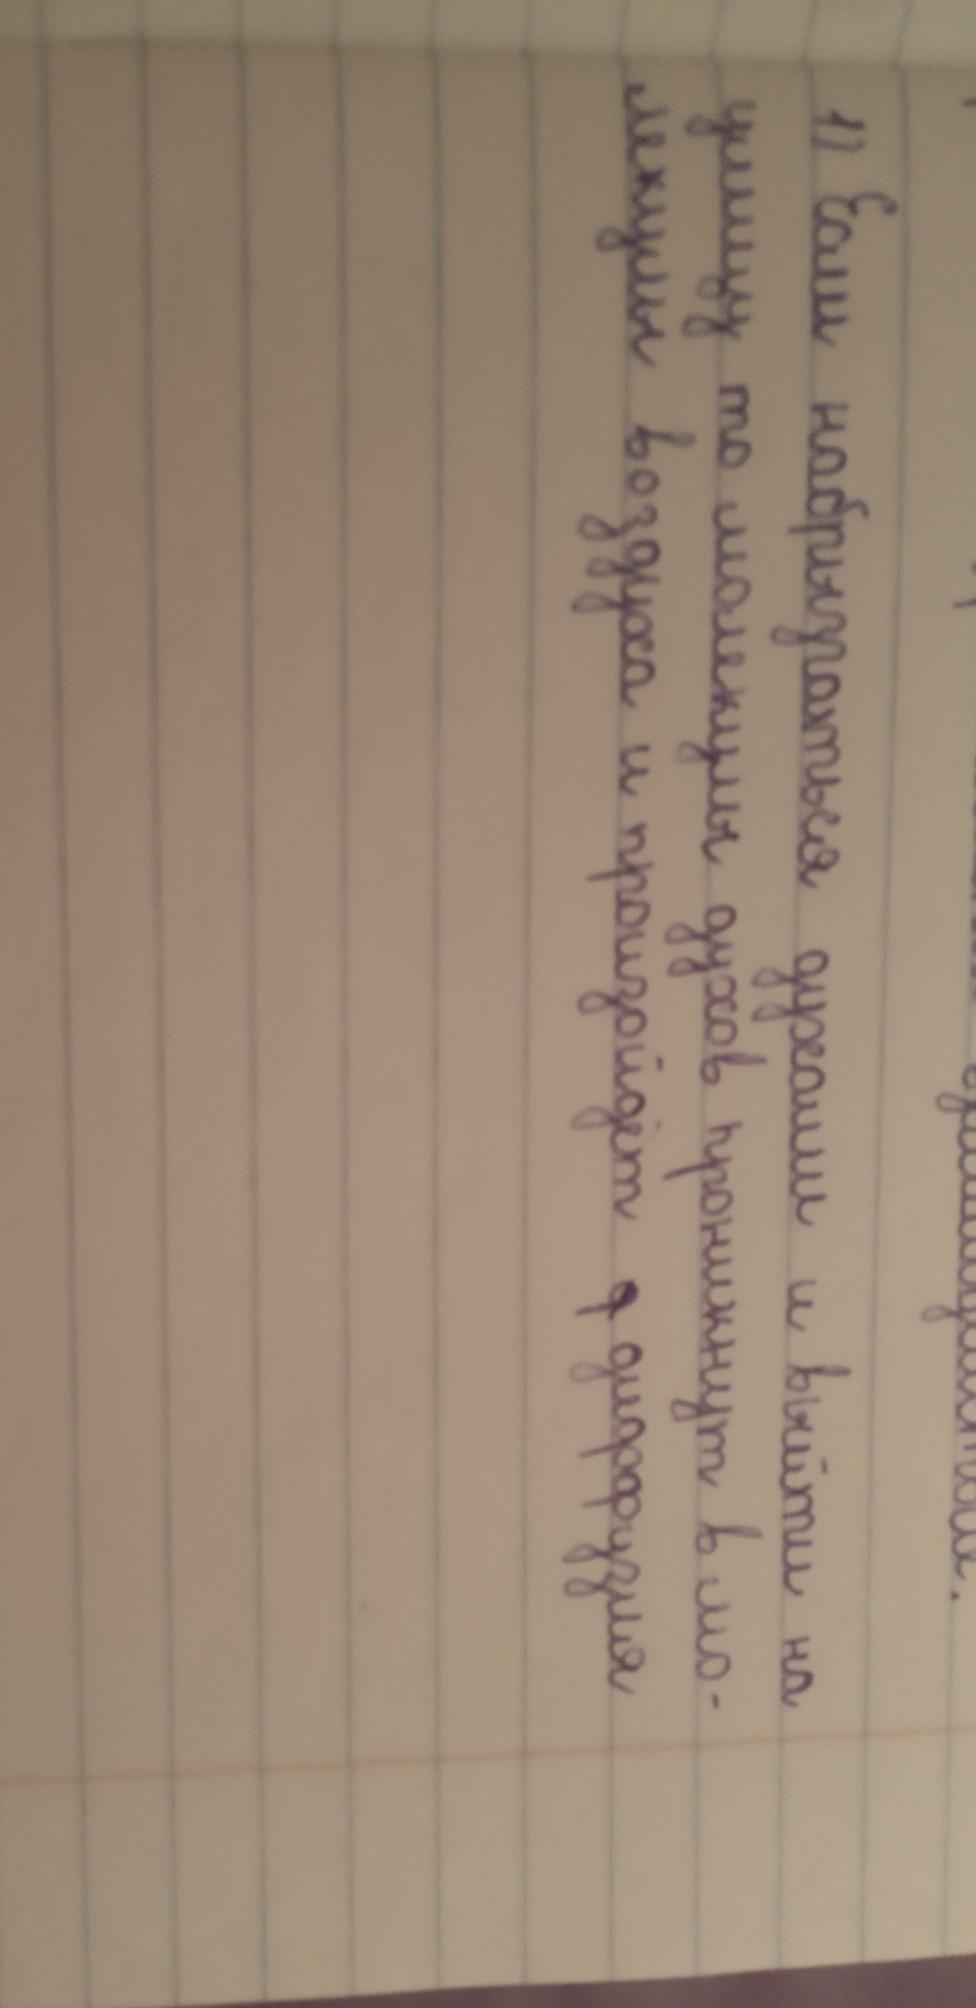 1) Если набрызгаться духами и выйти на
улицу то молекулы духов проникнут в мо-
лекулы воздуха и произойдёт диффузия